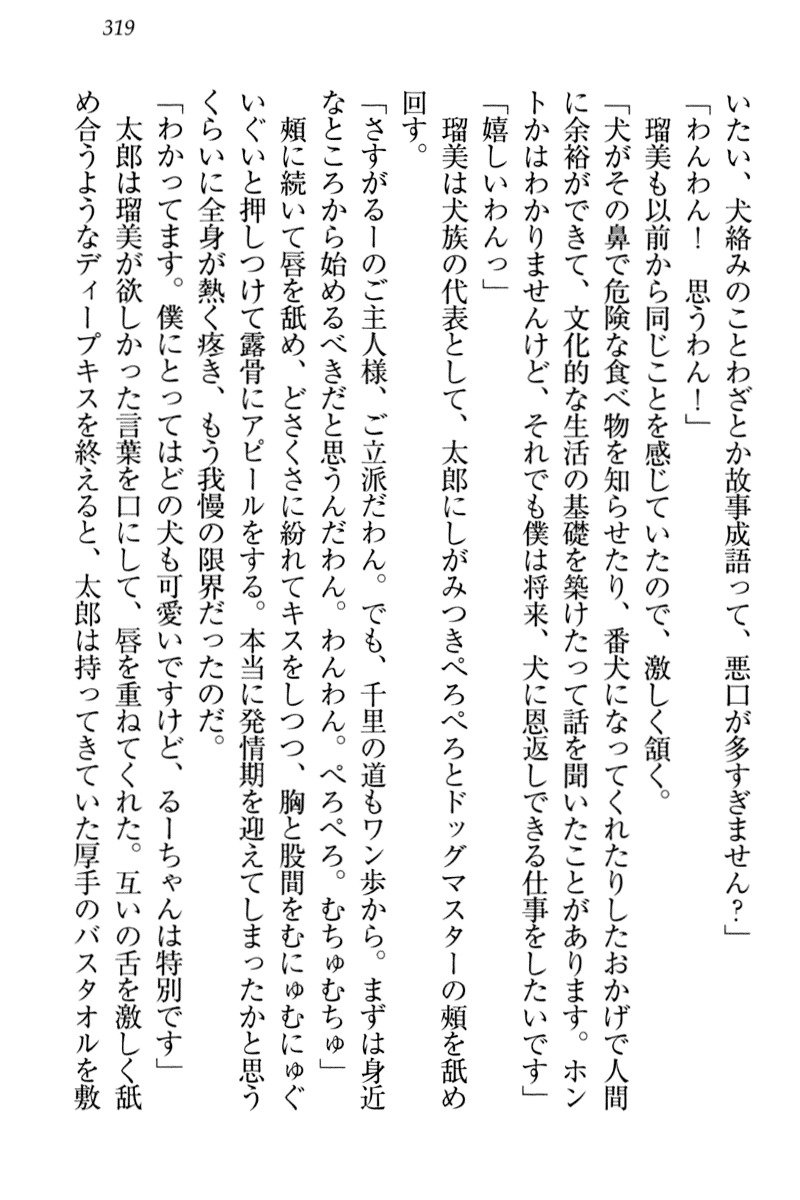 319
いたい、犬絡みのことわざとか故事成語って、悪口が多すぎません？」
「わんわん！　思うわん！」
　瑠美も以前から同じことを感じていたので、激しく頷く。
「犬がその鼻で危険な食べ物を知らせたり、番犬になってくれたりしたおかげで人間
に余裕ができて、文化的な生活の基礎を築けたって話を聞いたことがあります。ホン
トかはわかりませんけど、それでも僕は将来、犬に恩返しできる仕事をしたいです」
「嬉しいわんっ」
　瑠美は犬族の代表として、太郎にしがみつきぺろぺろとドッグマスターの頰を舐め
回す。
「さすがるーのご主人様、ご立派だわん。でも、千里の道もワン歩から。まずは身近
なところから始めるべきだと思うんだわん。わんわん。ぺろぺろ。むちゅむちゅ」
　頰に続いて唇を舐め、どさくさに紛れてキスをしつつ、胸と股間をむにゅむにゅぐ
いぐいと押しつけて露骨にアピールをする。本当に発情期を迎えてしまったかと思う
くらいに全身が熱く疼き、もう我慢の限界だったのだ。
「わかってます。僕にとってはどの犬も可愛いですけど、るーちゃんは特別です」
　太郎は瑠美が欲しかった言葉を口にして、唇を重ねてくれた。互いの舌を激しく舐
め合うようなディープキスを終えると、太郎は持ってきていた厚手のバスタオルを敷